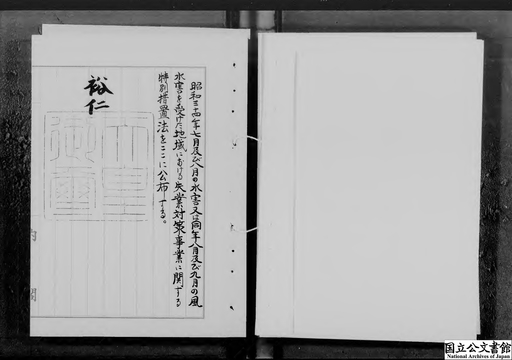 昭和三十四年七月及び八月の水害又は同年八月及び九月の風
水害を受けた地域における失業対策事業に関する
特別措置法をここに公布する。
裕仁
天皇
御璽
内閣
国立公文書館
National Archives of Japan